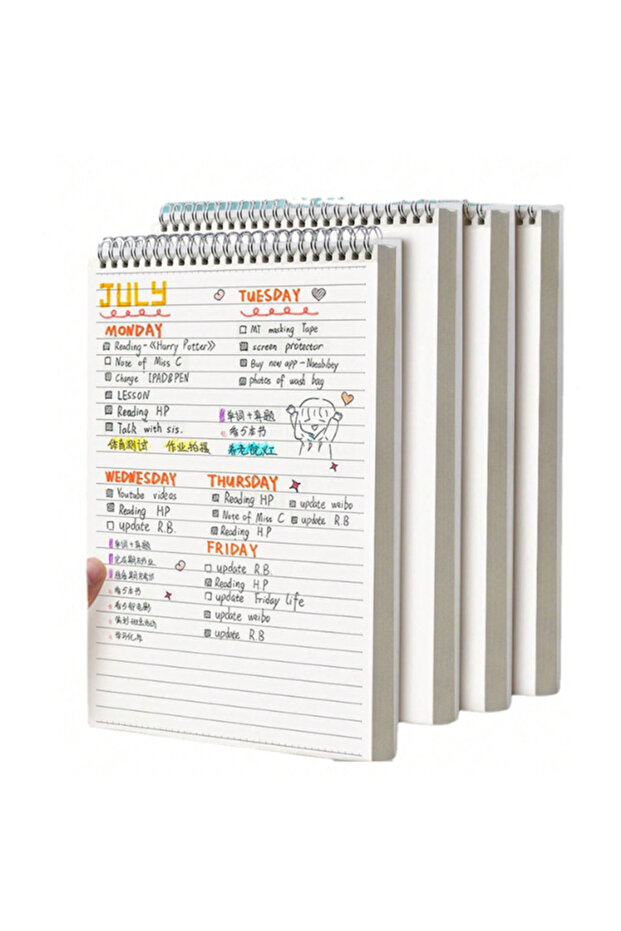 JULY
MONDAY
Reading-《Harry Potter》
Note of Miss C
Change IPAD&PEN
LESSON
Reading HP
Talk with sis.
体育测试 作业拍摄
TUESDAY
MT masking Tape
screen protector
Buy new app-Notability
photos of wash bag
单词+真题
看5本书
WEDNESDAY
Youtube videos
Reading HP
update R.B.
单词+真题
看5本书
THURSDAY
Reading HP
Note of Miss C
Reading H.P
update weibo
update R.B
FRIDAY
update R.B.
Reading H.P
update Friday life
update weibo
update R.B